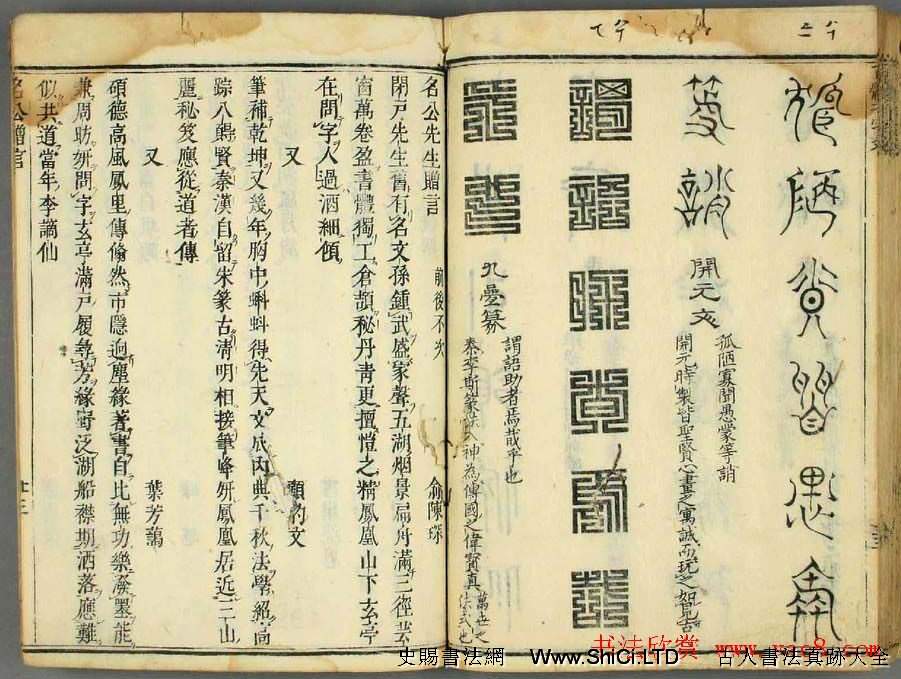 孤陋寡聞愚蒙等誚
篆訣
開元文
開元時製皆聖賢心畫之寓誠而玩之如見古
謂語助者焉哉乎也
九疊篆
秦李斯篆法入神為傳國之偉寶真萬世之法式也
名公先生贈言 前後不次 陳
閉戸先生舊有名文孫鍾武盛家聲五湖烟景扁舟滿三徑芸
窗萬卷盈書體獨工倉頡秘丹青更擅愷之精鳳凰山下玄亭
在問字人過酒細傾
又 顧 文
筆補乾坤又幾年胸中蝌蚪得先天文成内典千秋法學紹高
踪八 賢秦漢自留朱篆古清明相接筆峰妍鳳凰居近三山
麗秘笈應從道者傳
又 葉芳藹
碩德高風鳳里傳翛然市隱迥塵緣著書自比無功樂潑墨能
兼周昉妍問字玄亭滿戸履尋芳緣野泛湖船襟期洒落應難
似共道當年李謫仙
名公贈言
史賜書法網 Www.ShiCi.LTD 古人書法真跡大全
书法欣赏